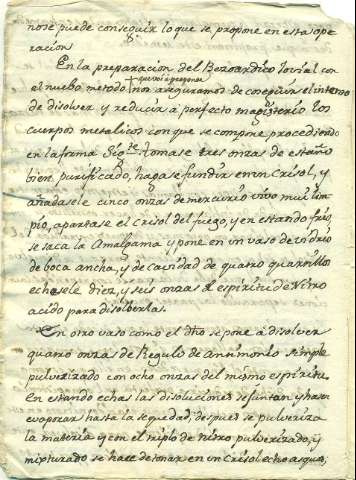 nose puede conseguir lo que se propone en esta ope
racion
En la preparacion del Bezoardico Jovial con
el nuebo metodo nos aseguramos de conseguir el intento
de disolver y reducir à perfecto magisterio los
cuerpos metalicos con que se compone procediendo
en la forma Sigte. tomase tres onzas de estaño
bien purificado, hagase fundir en un Crisol, y
añadasele cinco onzas de mercurio vivo mui lim
pio, apartase el Crisol del fuego, y en estando frio,
se saca la Amalgama y pone en un vaso de vidrio
de boca ancha, y de cavidad de quatro quartillos
echasele diez, y seis onzas de espiritu de Nitro
acido para disolberlas.
En otro vaso como el dho se pone à disolver
quatro onzas de Regulo de Antimonio simple
pulverizado con ocho onzas del mismo espiritu.
En estando echas las disoluciones se juntan y hacen
evaporar hasta la sequedad, despues se pulveriza
la materia y con el triplo de nitro pulverizado, y
mixturado se hace detonar en un Crisol echo asqua,